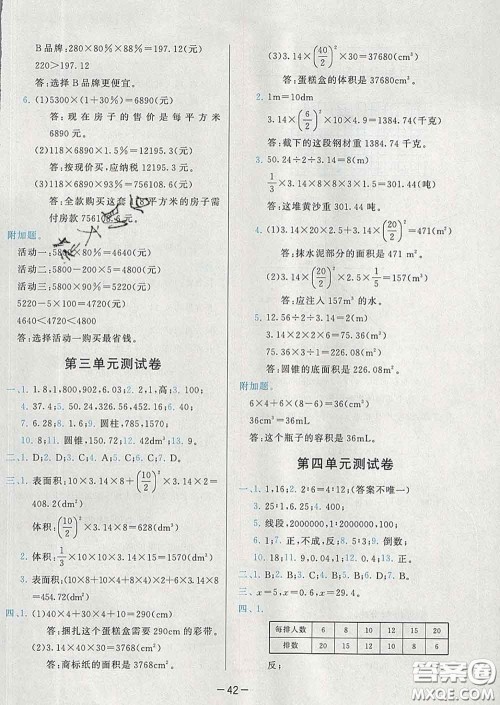 B品牌:280×80%×88%=197.12(元)
220>197.12
答:选择B品牌更便宜。
6. (1)5300×(1+30%)=6890(元)
答:现在房子的售价是每平方米
6890元。
(2)118×6890×1.5%=12195.3(元)
答:按现价买,应纳税12195.3元。
(3)118×6890×93%=756108.6(元)
答:全款购买这套118平方米的房子需
付房款756108.6元。
附加题。
活动一:5800×80%=4640(元)
活动二:5800-200×5=4800(元)
活动三:5800×90%=5220(元)
5220-5×100=4720(元)
4640<4720<4800
答:选择活动一购买最省钱。
第三单元测试卷
一、1. 1.8,1,800,902,6.03;2. 2,1,高;3. 100;
4. 37.4;5. 50.24,326.56,452.16;6. 9.42;
7. 6.28;8. 圆锥,圆柱,785,1570;
9. 25.12;10. 8;11. 圆锥,150.72;12. 3.6。
二、1. D;2. D;3. D;4. C;5. B。
三、1. 表面积:10×3.14×8+(10/2)²×3.14×2=
408.2(dm²)
体积:(10/2)²×3.14×8=628(dm³)
2. 体积:1/3×10×10×3.14×15=1570(dm³)
3. 表面积:(10×8+10×4+8×4)×2+6×3.14×8
=454.72(dm²)
四、1. (1)40×4+30×4+10=290(cm)
答:捆扎这个蛋糕盒需要290cm的彩带。
(2)3.14×40×30=3768(cm²)
答:商标纸的面积是3768cm²。
(3)3.14×(40/2)²×30=37680(cm³)
答:蛋糕盒的体积是37680cm³。
2. 1m=10dm
3.14×(6/2)²×10×4.9=1384.74(千克)
答:截下的这段钢材重1384.74千克。
3. 50.24÷2÷3.14=8(m)
1/3×3.14×8²×3×1.5=301.44(吨)
答:这堆黄沙重301.44吨。
4. (1)3.14×20×2.5+3.14×(20/2)²=471(m²)
答:抹水泥部分的面积是471m²。
(2)3.14×(20/2)²×2.5×1/5=157(m³)
答:应注入157m³的水。
5. 12.56÷2÷3.14=2(dm)
3.14×2²×2×3=75.36(dm³)
75.36×3÷1=226.08(dm²)
答:圆锥的底面积是226.08dm²。
附加题。
6×4+6×(8-6)=36(cm³)
36cm³=36mL
答:这个瓶子的容积是36mL。
第四单元测试卷
一、1. 1,16;2. 2∶6=4∶12;(答案不唯一)
3. 1.25,6.25;4. 400;
5. 线段,2000000,1∶2000000,100;
6. 1;7. 正,不成,反;8. 3;9. 倒数;
10. 18;11. 9,0.04,1,0.4;12. 13;13. 正。
二、1. B;2. B;3. C;4. B;5. A。
三、x=5,x=0.6,x=29.4。
四、1.
每排人数 6 8 10 12 15 20
排数 20 15 12 10 8 6
反;
—42—
答案圈
MXQE.COM